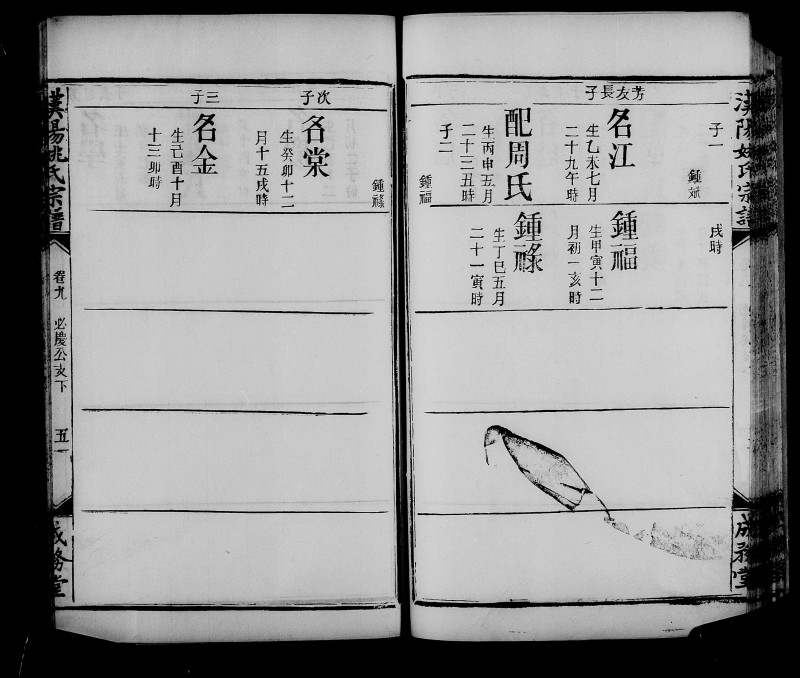 漢陽姚氏宗譜
成務堂
子一
鍾斌
戌時
芳友長子
名江
生乙未七月
二十九午時
配周氏
生丙申五月
二十三丑時
子二
鍾福
鍾福
生甲寅十二
月初一亥時
鍾祿
生丁巳五月
二十一寅時
鍾祿
次子
名棠
生癸卯十二
月十五戌時
三子
名金
生己酉十月
十三卯時
漢陽姚氏宗譜
卷九
必慶公支下
五一
成務堂